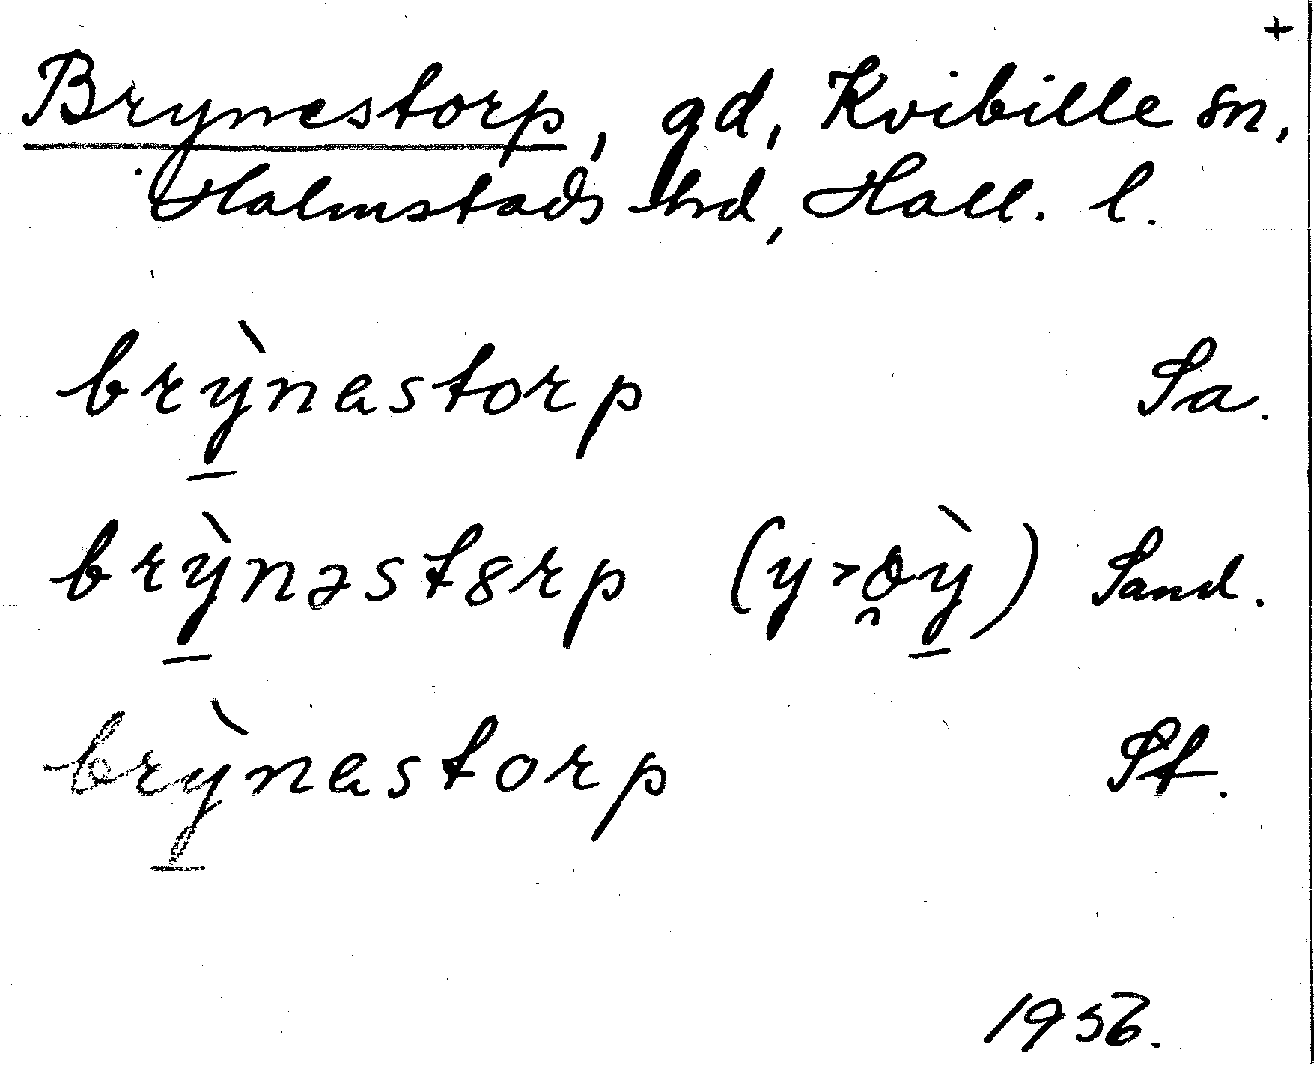 +
Brynestorp, gd, Kvibille sn,
Halmstads hd, Hall. l.
brỳ̱nastorp Sa.
brỳ̱nəst8rp (y > ȏ̯ỳ̱) Sand.
brỳ̱nastorp St.
1956.